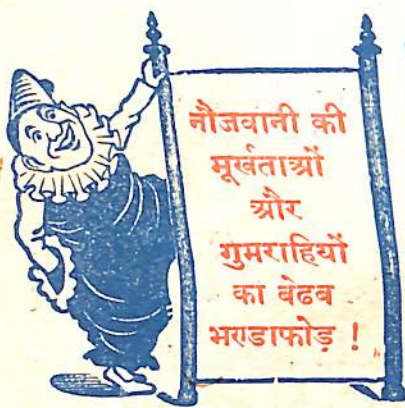 नौजवानी की
मूर्खताओं
और
गुमराहियों
का बेढब
भण्डाफोड़ !